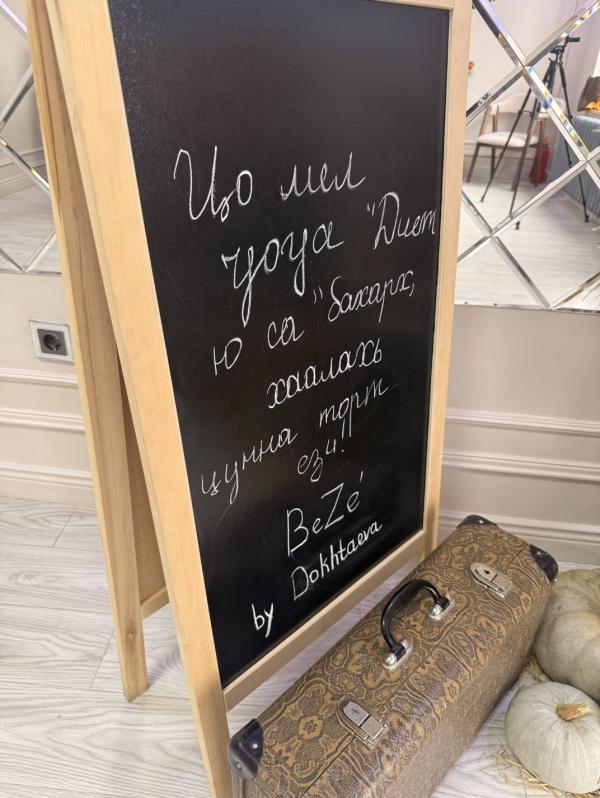 Цо мел
уоуа "Диет
ю са" бахарх,
хаалахь
цунна торт
ези!
BeZé
by Dokhtaeva